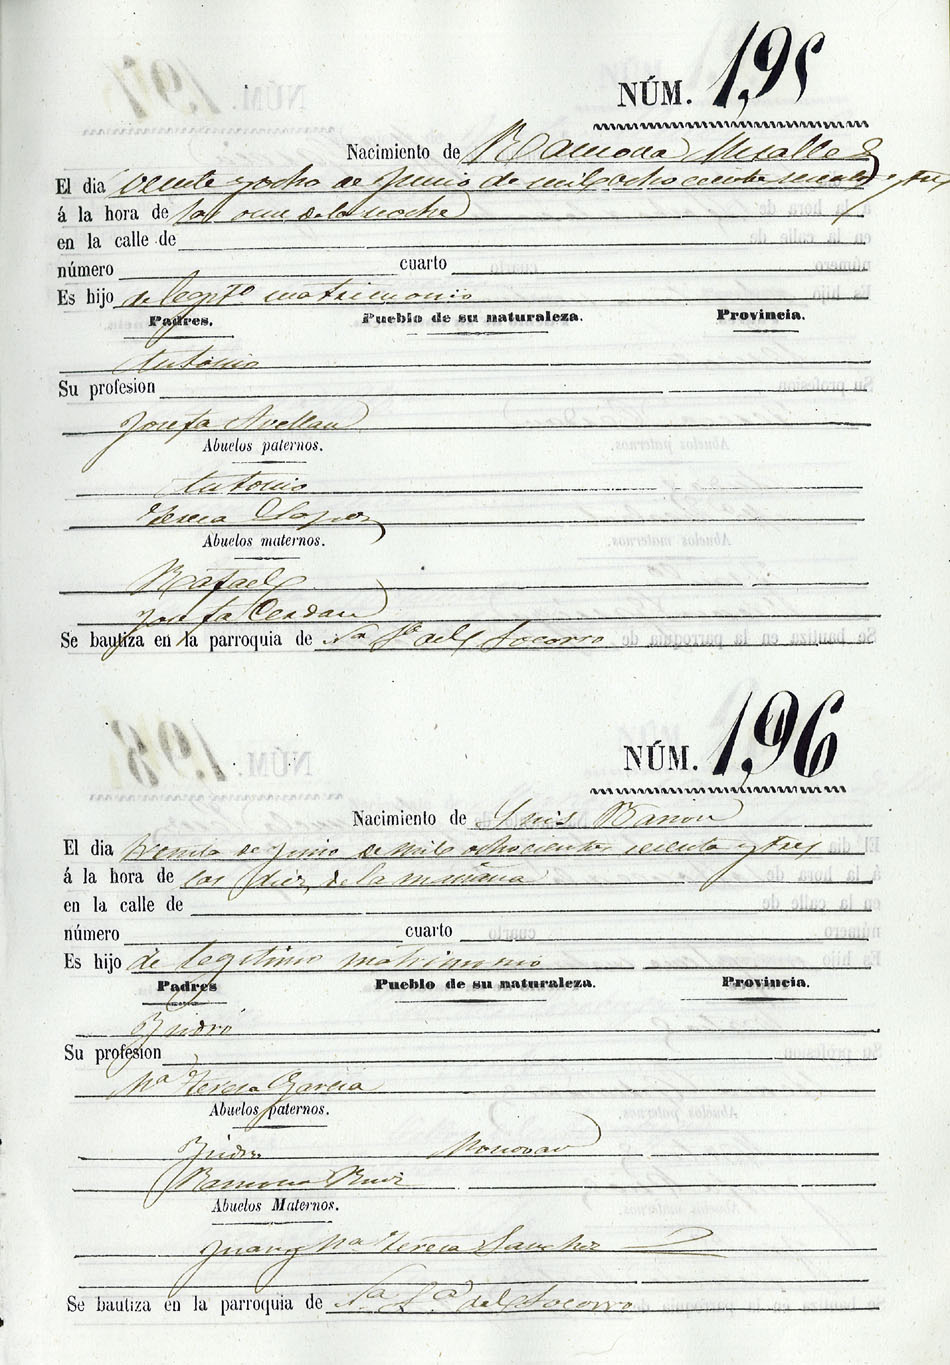 NÚM. 195
Nacimiento de Ramona Miralles
El dia veinte y ocho de Junio de mil ochocientos sesenta y tres
á la hora de las once de la noche
en la calle de
número cuarto
Es hijo de legmo matrimonio
Padres. Pueblo de su naturaleza. Provincia.
Antonio
Su profesion
Josefa Avellan
Abuelos paternos.
Antonio
Teresa Lopez
Abuelos maternos.
Rafael
Josefa Cerdan
Se bautiza en la parroquia de Na Sra del Socorro
NÚM. 196
Nacimiento de Luis
El dia treinta de Junio de mil ochocientos sesenta y tres
á la hora de las diez de la mañana
en la calle de
número cuarto
Es hijo de legitimo matrimonio
Padres Pueblo de su naturaleza. Provincia.
Ysidro
Su profesion
Ma Teresa Garcia
Abuelos paternos.
Ysidro Monovar
Ramona Ruiz
Abuelos Maternos.
Juan y Ma Teresa Sanchez
Se bautiza en la parroquia de Na Sra del Socorro